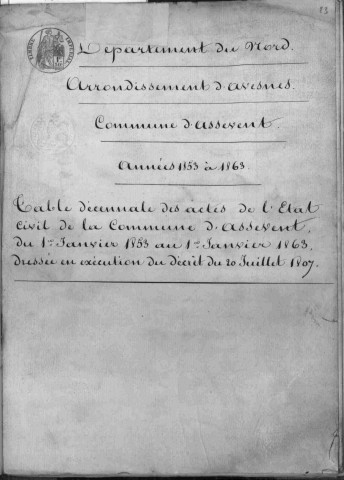 13
Département du Nord.
Arrondissement d'avesnes.
Commune d'assevent.
années 1853 à 1863.
Table décennale des actes de l'Etat
Civil de la Commune d'assevent,
du 1er Janvier 1853 au 1er Janvier 1863,
dressée en exécution du Décret du 20 Juillet 1807.